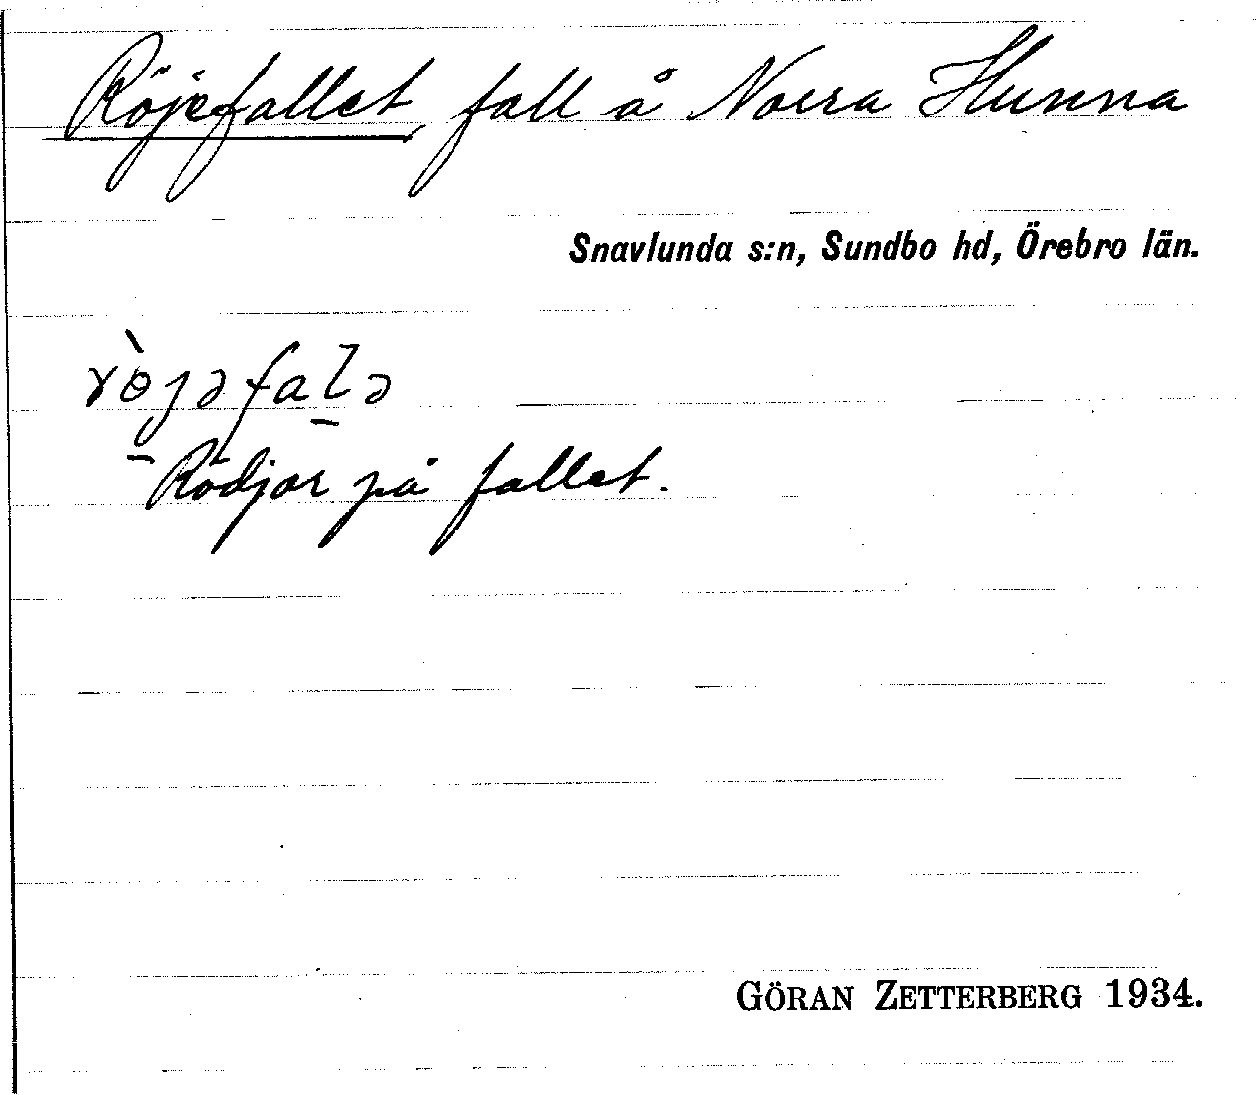 Röjefallet, fall å Norra Hunna
Snavlunda s:n, Sundbo hd, Örebro län.
rø̀jəfalə
Rödjor på fallet.
GÖRAN ZETTERBERG 1934.